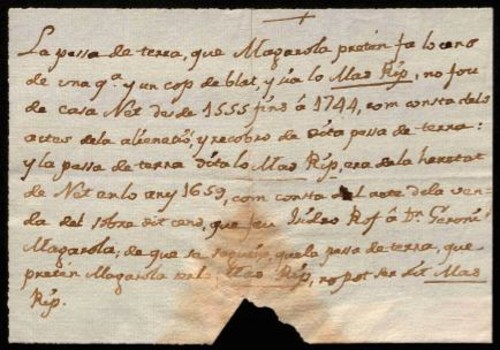 La pessa de terra, que Magarola pretén fa lo cens
de una qª. y un cop de blat, y ŝia lo Mas Rip, no fou
de casa Net desde 1555 fins á 1744, com consta dels
actes dela alienatió, y recobro de dita pessa de terra:
y la pessa de terra dita lo Mas Rip, era dela heretat
de Net en lo any 1659, com consta del acte dela ven-
da del sobra dit cens, que feu Isidro Rof á Dn. Geroni
Magarola; de que se segueix, que la pessa de terra, que
pretén Magarola ser lo Mas Rip, no pot ser dit Mas
Rip.